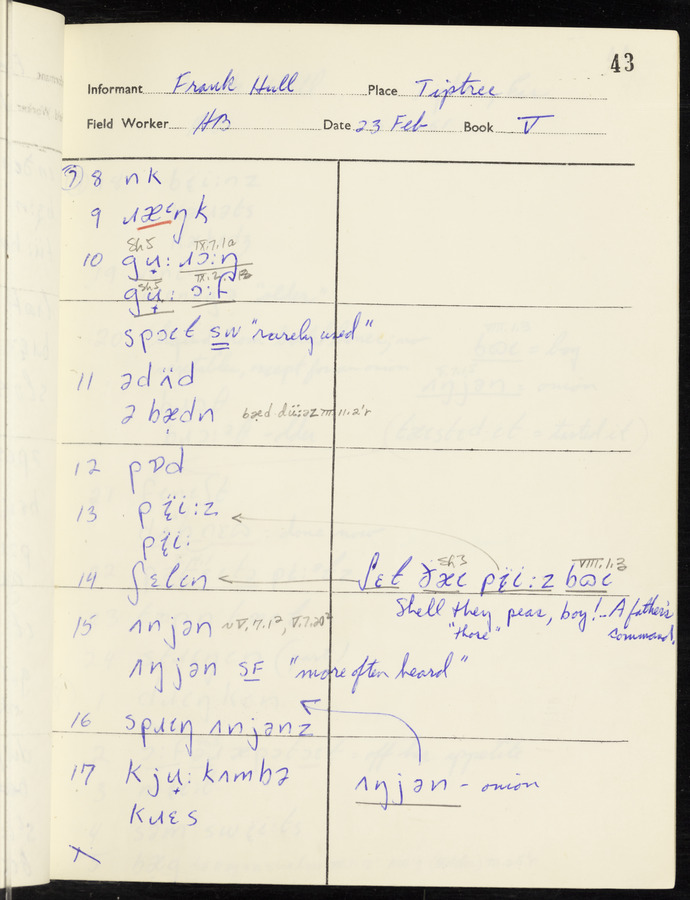 43
Informant Frank Hull Place Tiptree
Field Worker HB Date 23 Feb Book V
⑦ 8 nk
9 ɹæᶓŋk
Sh5 IX.7.1a
10 gʉ: ɹɔ:ŋ
Sh5
gʉ: ɔ:f
spɔɪl sw "rarely used"
11 ədʌ̈d
ə bædn bæd
12 pɒd
13 pɪ̈i:z
pɪ̈i:
14 ʃɛlɪn
Sh3 VIII.1.3
ʃɛl ðæɪ pɪ̈i:z bɔɪ
Shell they peas, boy! - A father's
"those" command.
15 ʌnjən ~V.7.1², V.7.20²
ʌŋjən SF "more often heard"
16 spɹɪŋ ʌnjənz
17 kjʉ: kʌmbə
ʌŋjən - onion
kɹɛs